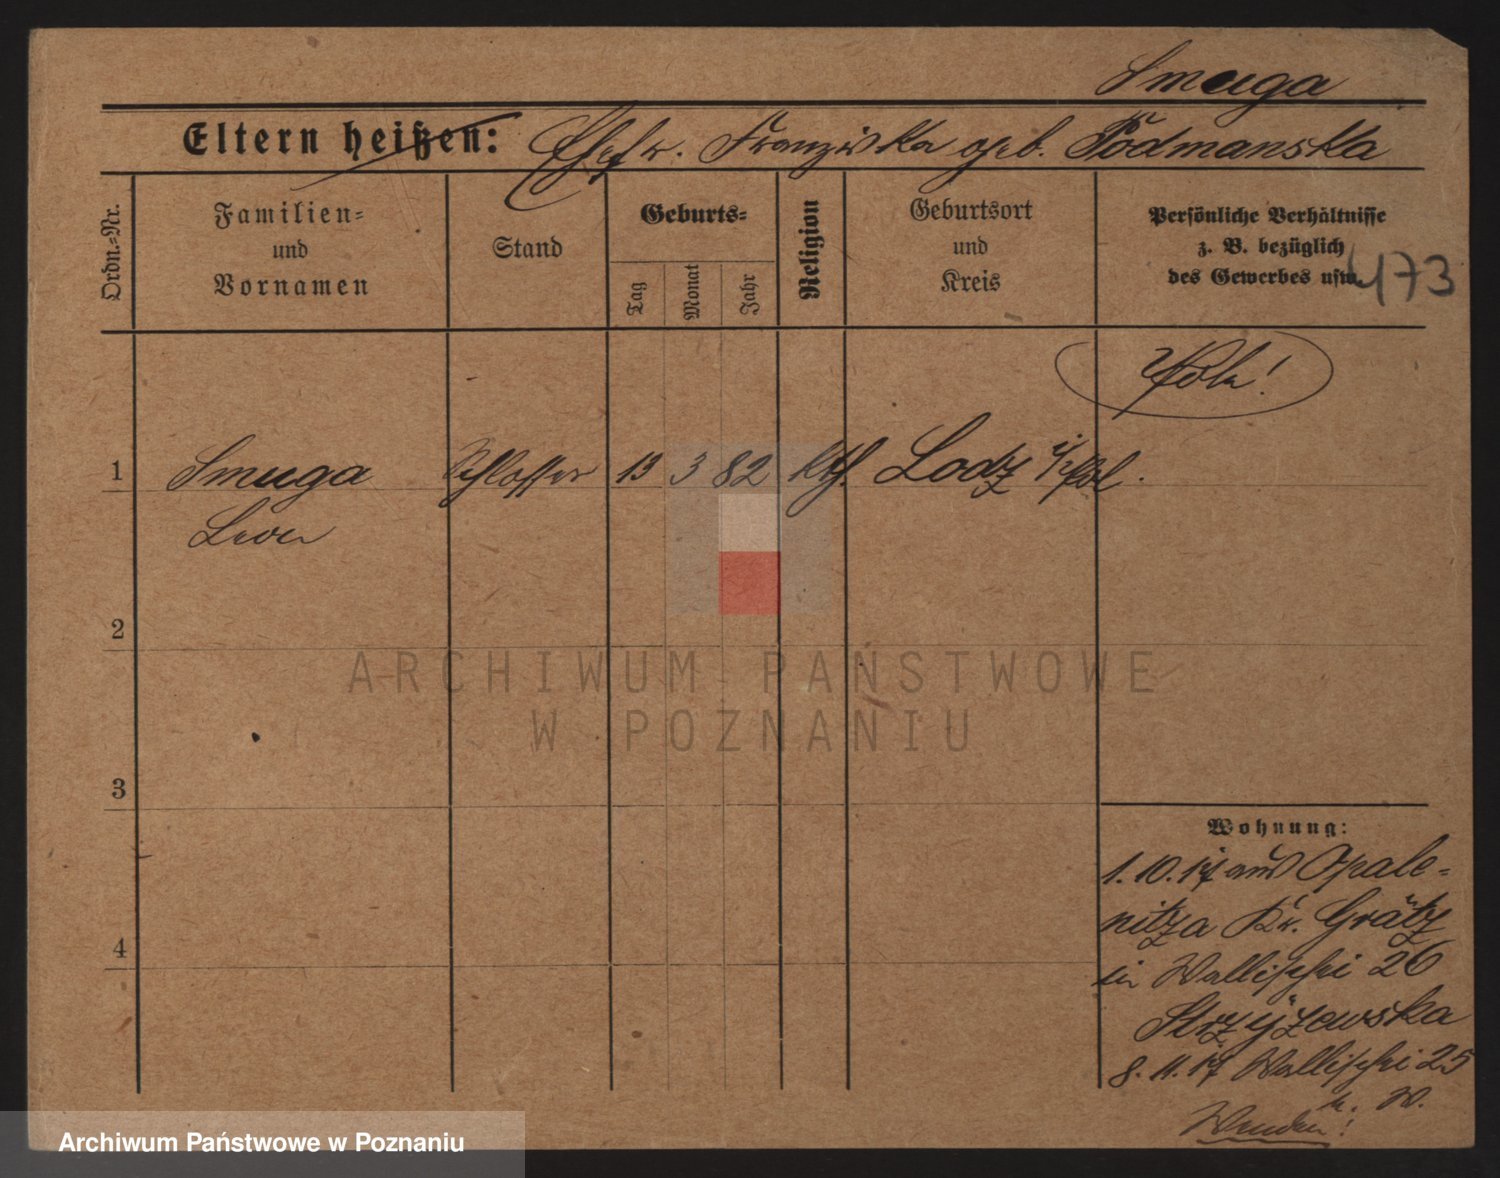 Smuga
Eltern heißen: Ehefr. Franziska geb. Podmanska
Ordn.=Nr.
Familien=
und
Vornamen
Stand
Geburts=
Tag
Monat
Jahr
Religion
Geburtsort
und
Kreis
Persönliche Verhältnisse
z. B. bezüglich
des Gewerbes usw.
473
Pole!
1 Smuga Schlosser 13 3 82 kth. Lodz Pol.
Leon
2
3
4
Wohnung:
1.10.17 aus Opale=
nitza Kr. Grätz
in Wallischei 26
Strzyżewska
8.11.17 Wallischei 25
b. W.
Wenden!
ARCHIWUM PAŃSTWOWE
W POZNANIU
Archiwum Państwowe w Poznaniu